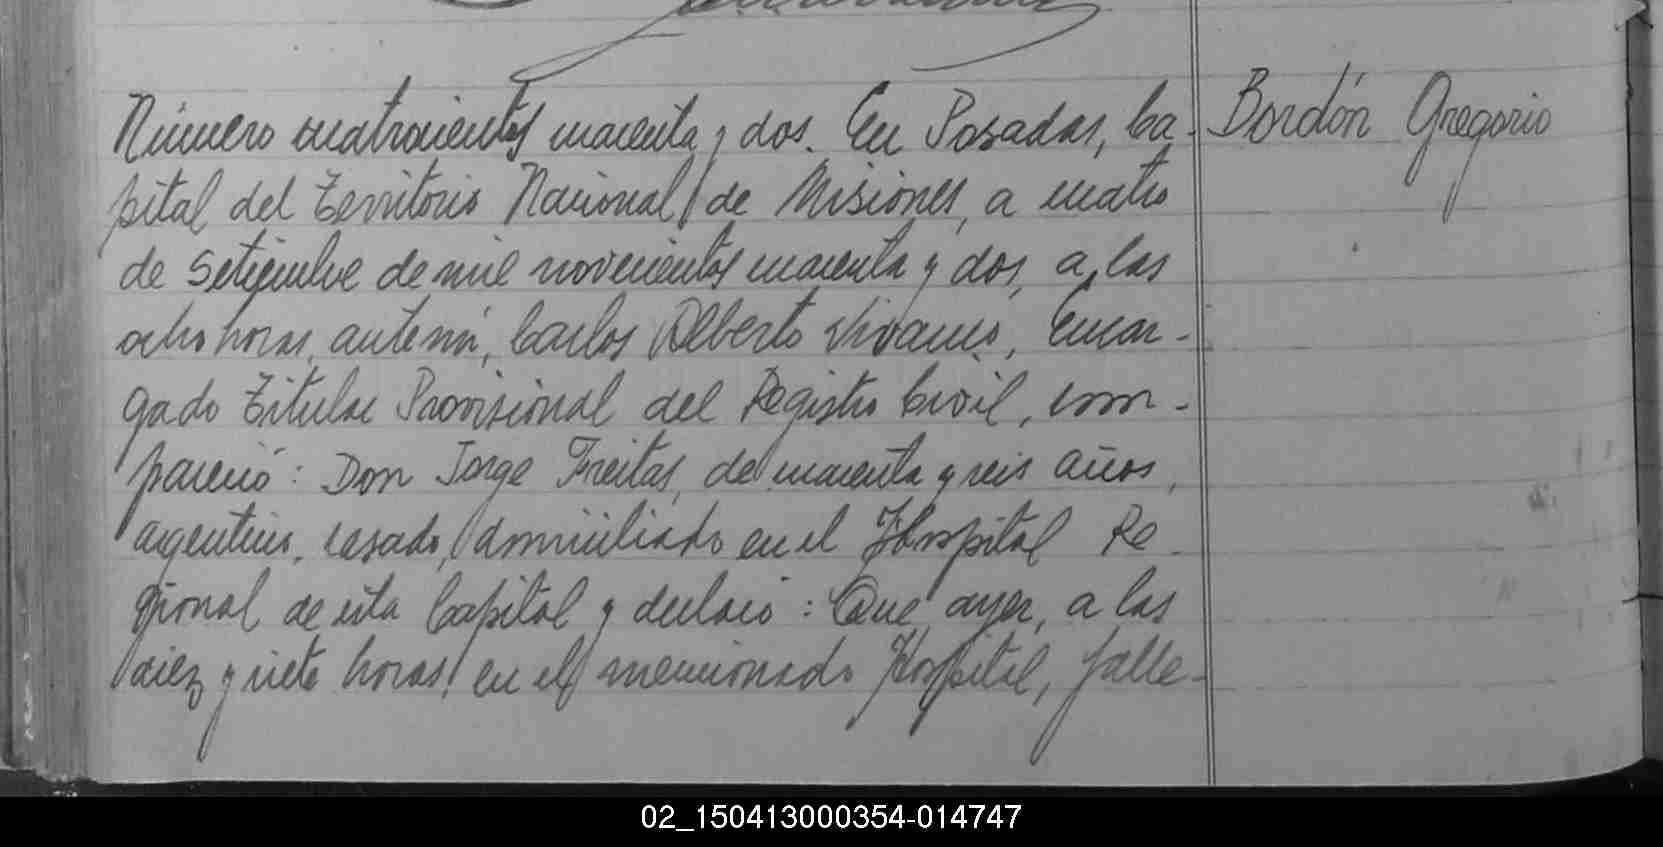 Número cuatrocientos cuarenta y dos. En Posadas, Ca-
Bordón Gregorio
pital del Territorio Nacional de Misiones, a cuatro
de Setiembre de mil novecientos cuarenta y dos, a las
ocho horas, ante mí, Carlos Alberto Vivanco, Encar-
gado Titular Provisional del Registro Civil, com-
pareció: Don Jorge Freitas, de cuarenta y seis años,
argentino, casado, domiciliado en el Hospital Re-
gional de esta Capital y declaró: Que ayer, a las
diez y siete horas, en el mencionado Hospital, falle-
02_150413000354-014747